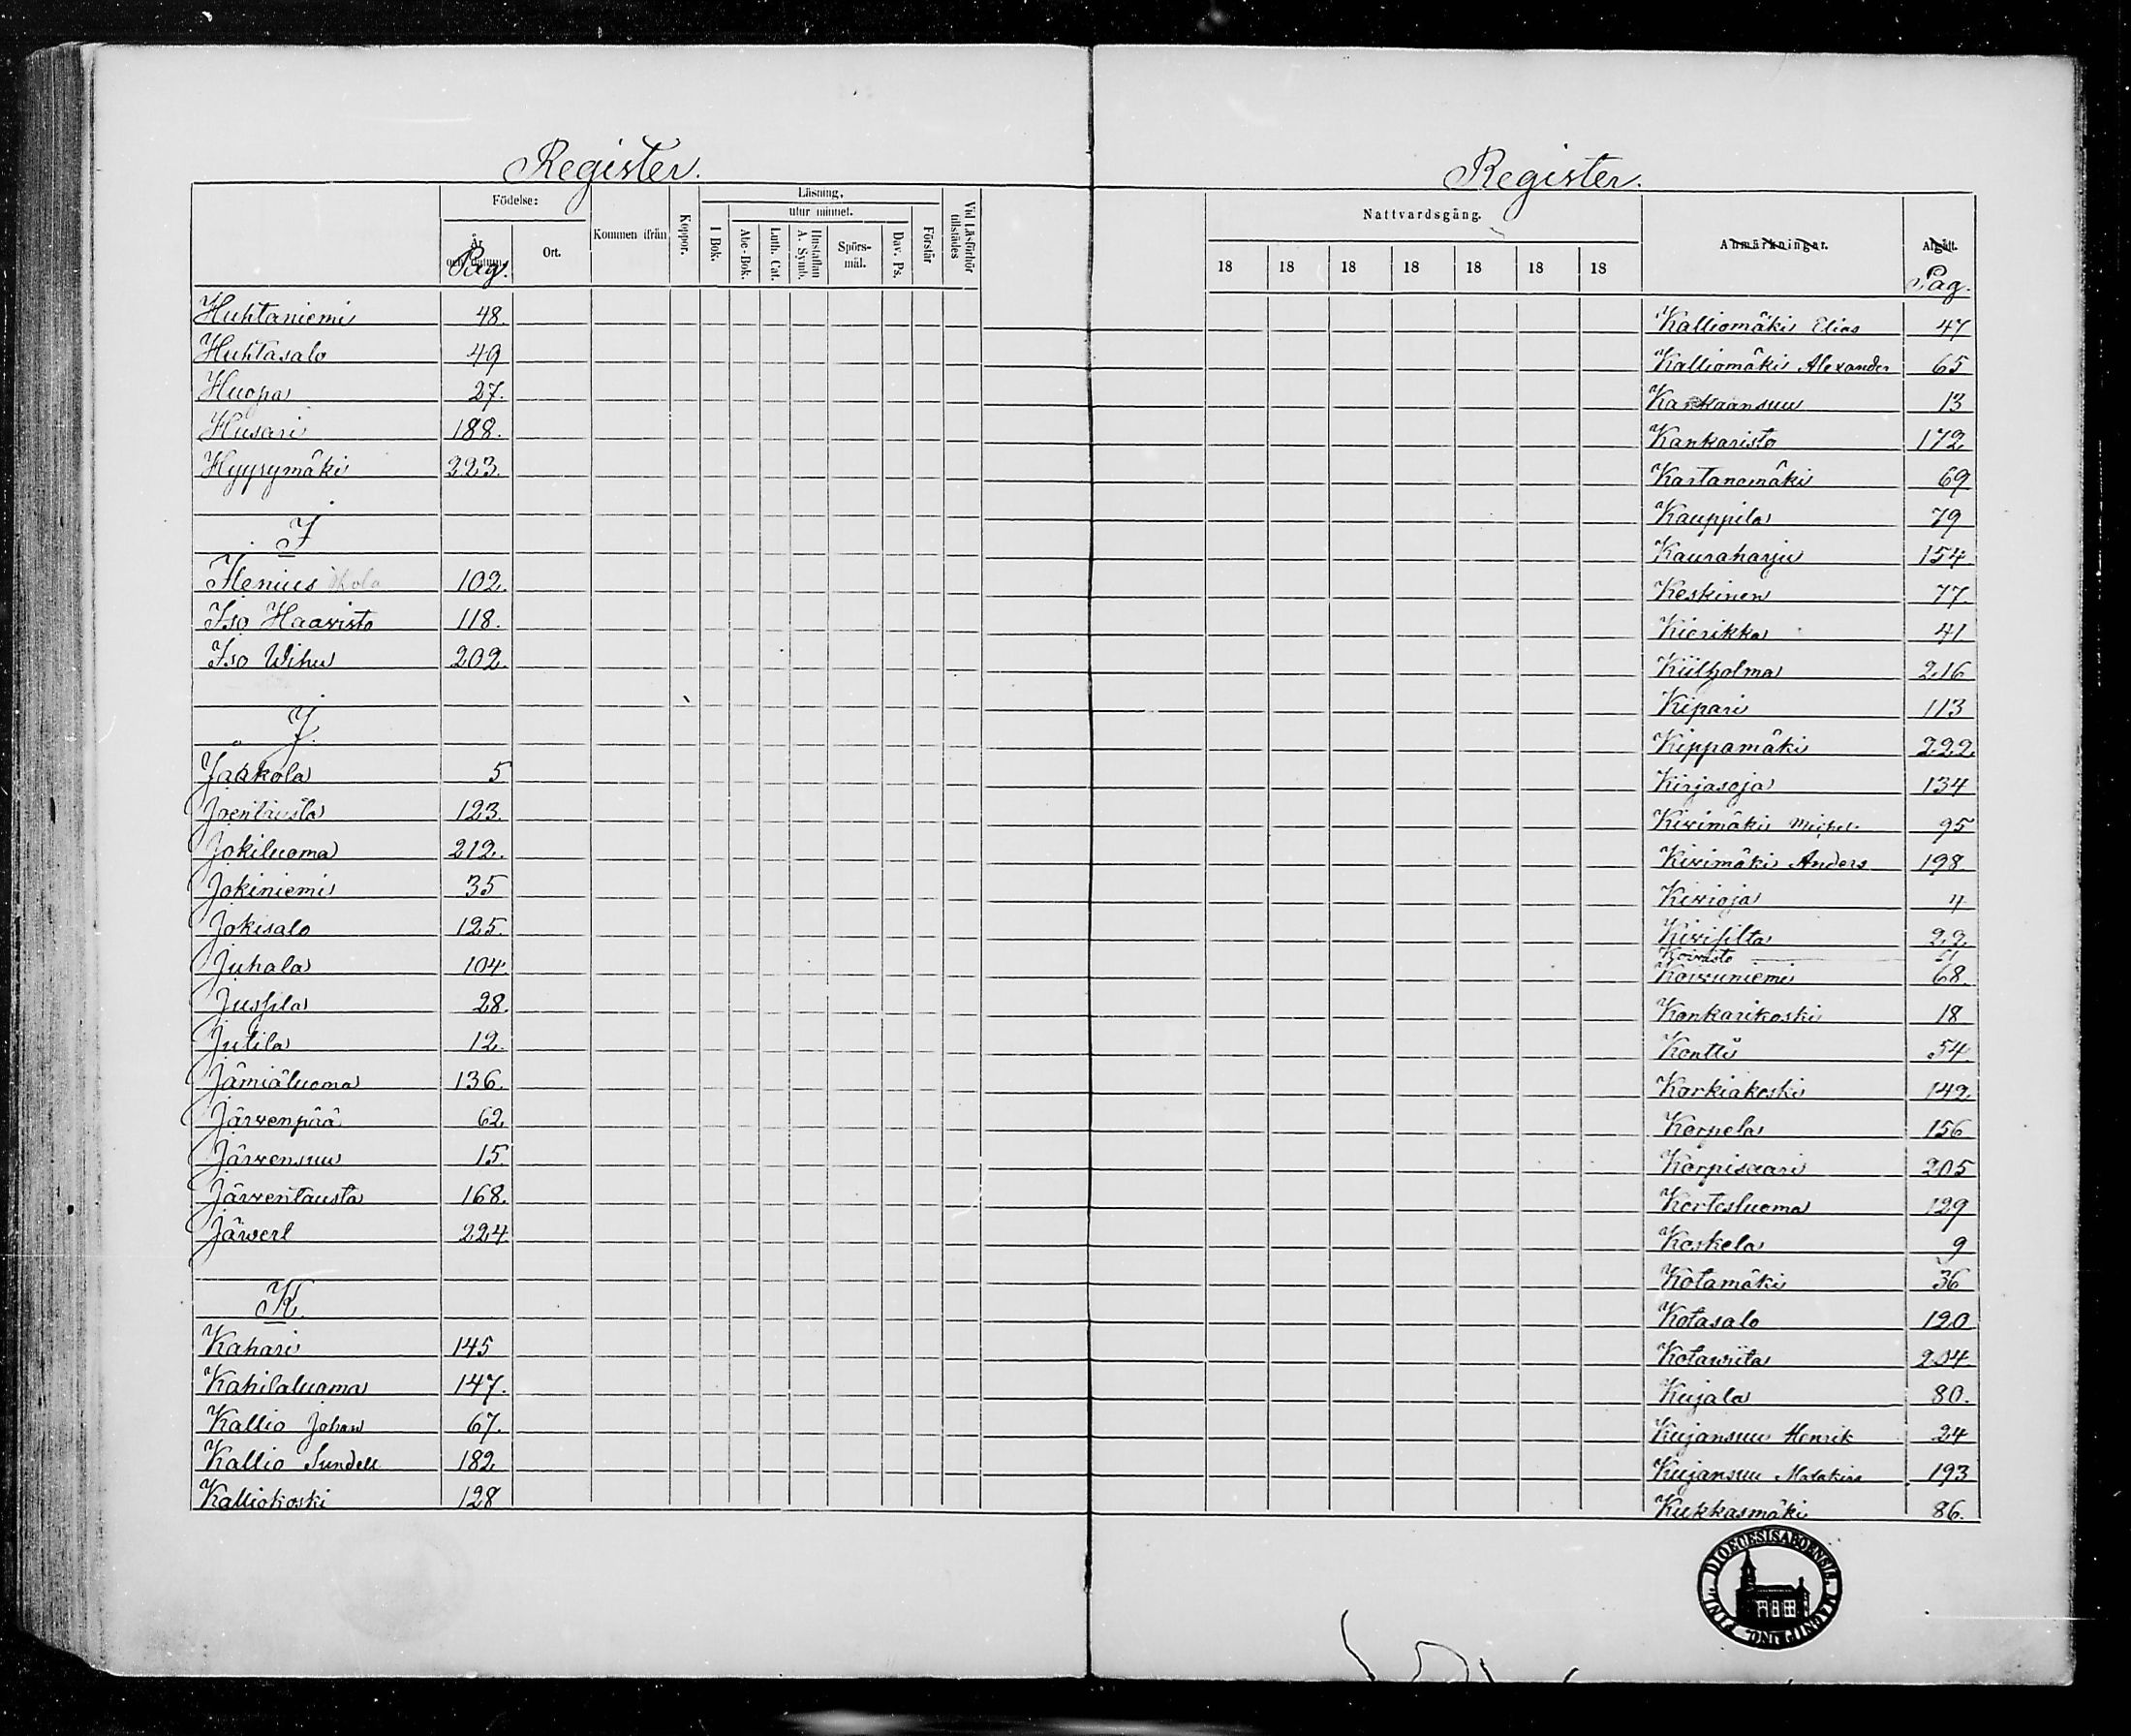 Register.
Födelse:
År
och datum.
Pag.
Ort.
Kommen ifrån
Koppor.
Läsning,
utur minnet.
I Bok.
Abc-Bok.
Luth. Cat.
Hustaflan
A. Symb.
Spörs-
mål.
Dav. Ps.
Förstår
Vid Läsförhör
tillstädes
Huhtaniemi 48.
Huhtasalo 49
Huopa 27.
Husari 188.
Hyypymäki 223.
I
Ilenius 102.
Iso Haavisto 118.
Iso Wihu 202.
J.
Jaakola 5
Joentausta 123.
Jokiluoma 212.
Jokiniemi 35
Jokisalo 125.
Juhala 104.
Jussila 28.
Jutila 12.
Jämiäluoma 136.
Järvenpää 62
Järvensuu 15.
Järventausta 168.
Jäwerl 224
K.
Kahari 145
Kahilaluoma 147.
Kallio Johan 67.
Kallio Sundell 182
Kalliokoski 128
Register.
Nattvardsgång.
18 18 18 18 18 18 18
Anmärkningar.
Afgått.
Pag.
Kalliomäki Elias 47
Kalliomäki Alexander 65
Kankaansuu 13
Kankaristo 172
Kastanemäki 69
Kauppila 79
Kauraharju 154
Keskinen 77.
Kierikka 41
Kiilholma 216
Kipari 113
Kippamäki 222
Kirjasoja 134
Kivimäki Michel. 95
Kivimäki Anders 198.
Kivioja 4
Kivisilta 22
Koivisto
Koivuniemi 68.
Konkarikoski 18
Kontti 54
Korkiakoski 142
Korpela 156
Korpisaari 205
Kortesluoma 129
Koskela 9
Kotamäki 36
Kotasalo 120
Kotawiita 204
Kujala 80.
Kujansuu Henrik 24
Kujansuu Malakias 193
Kukkasmäki 86.